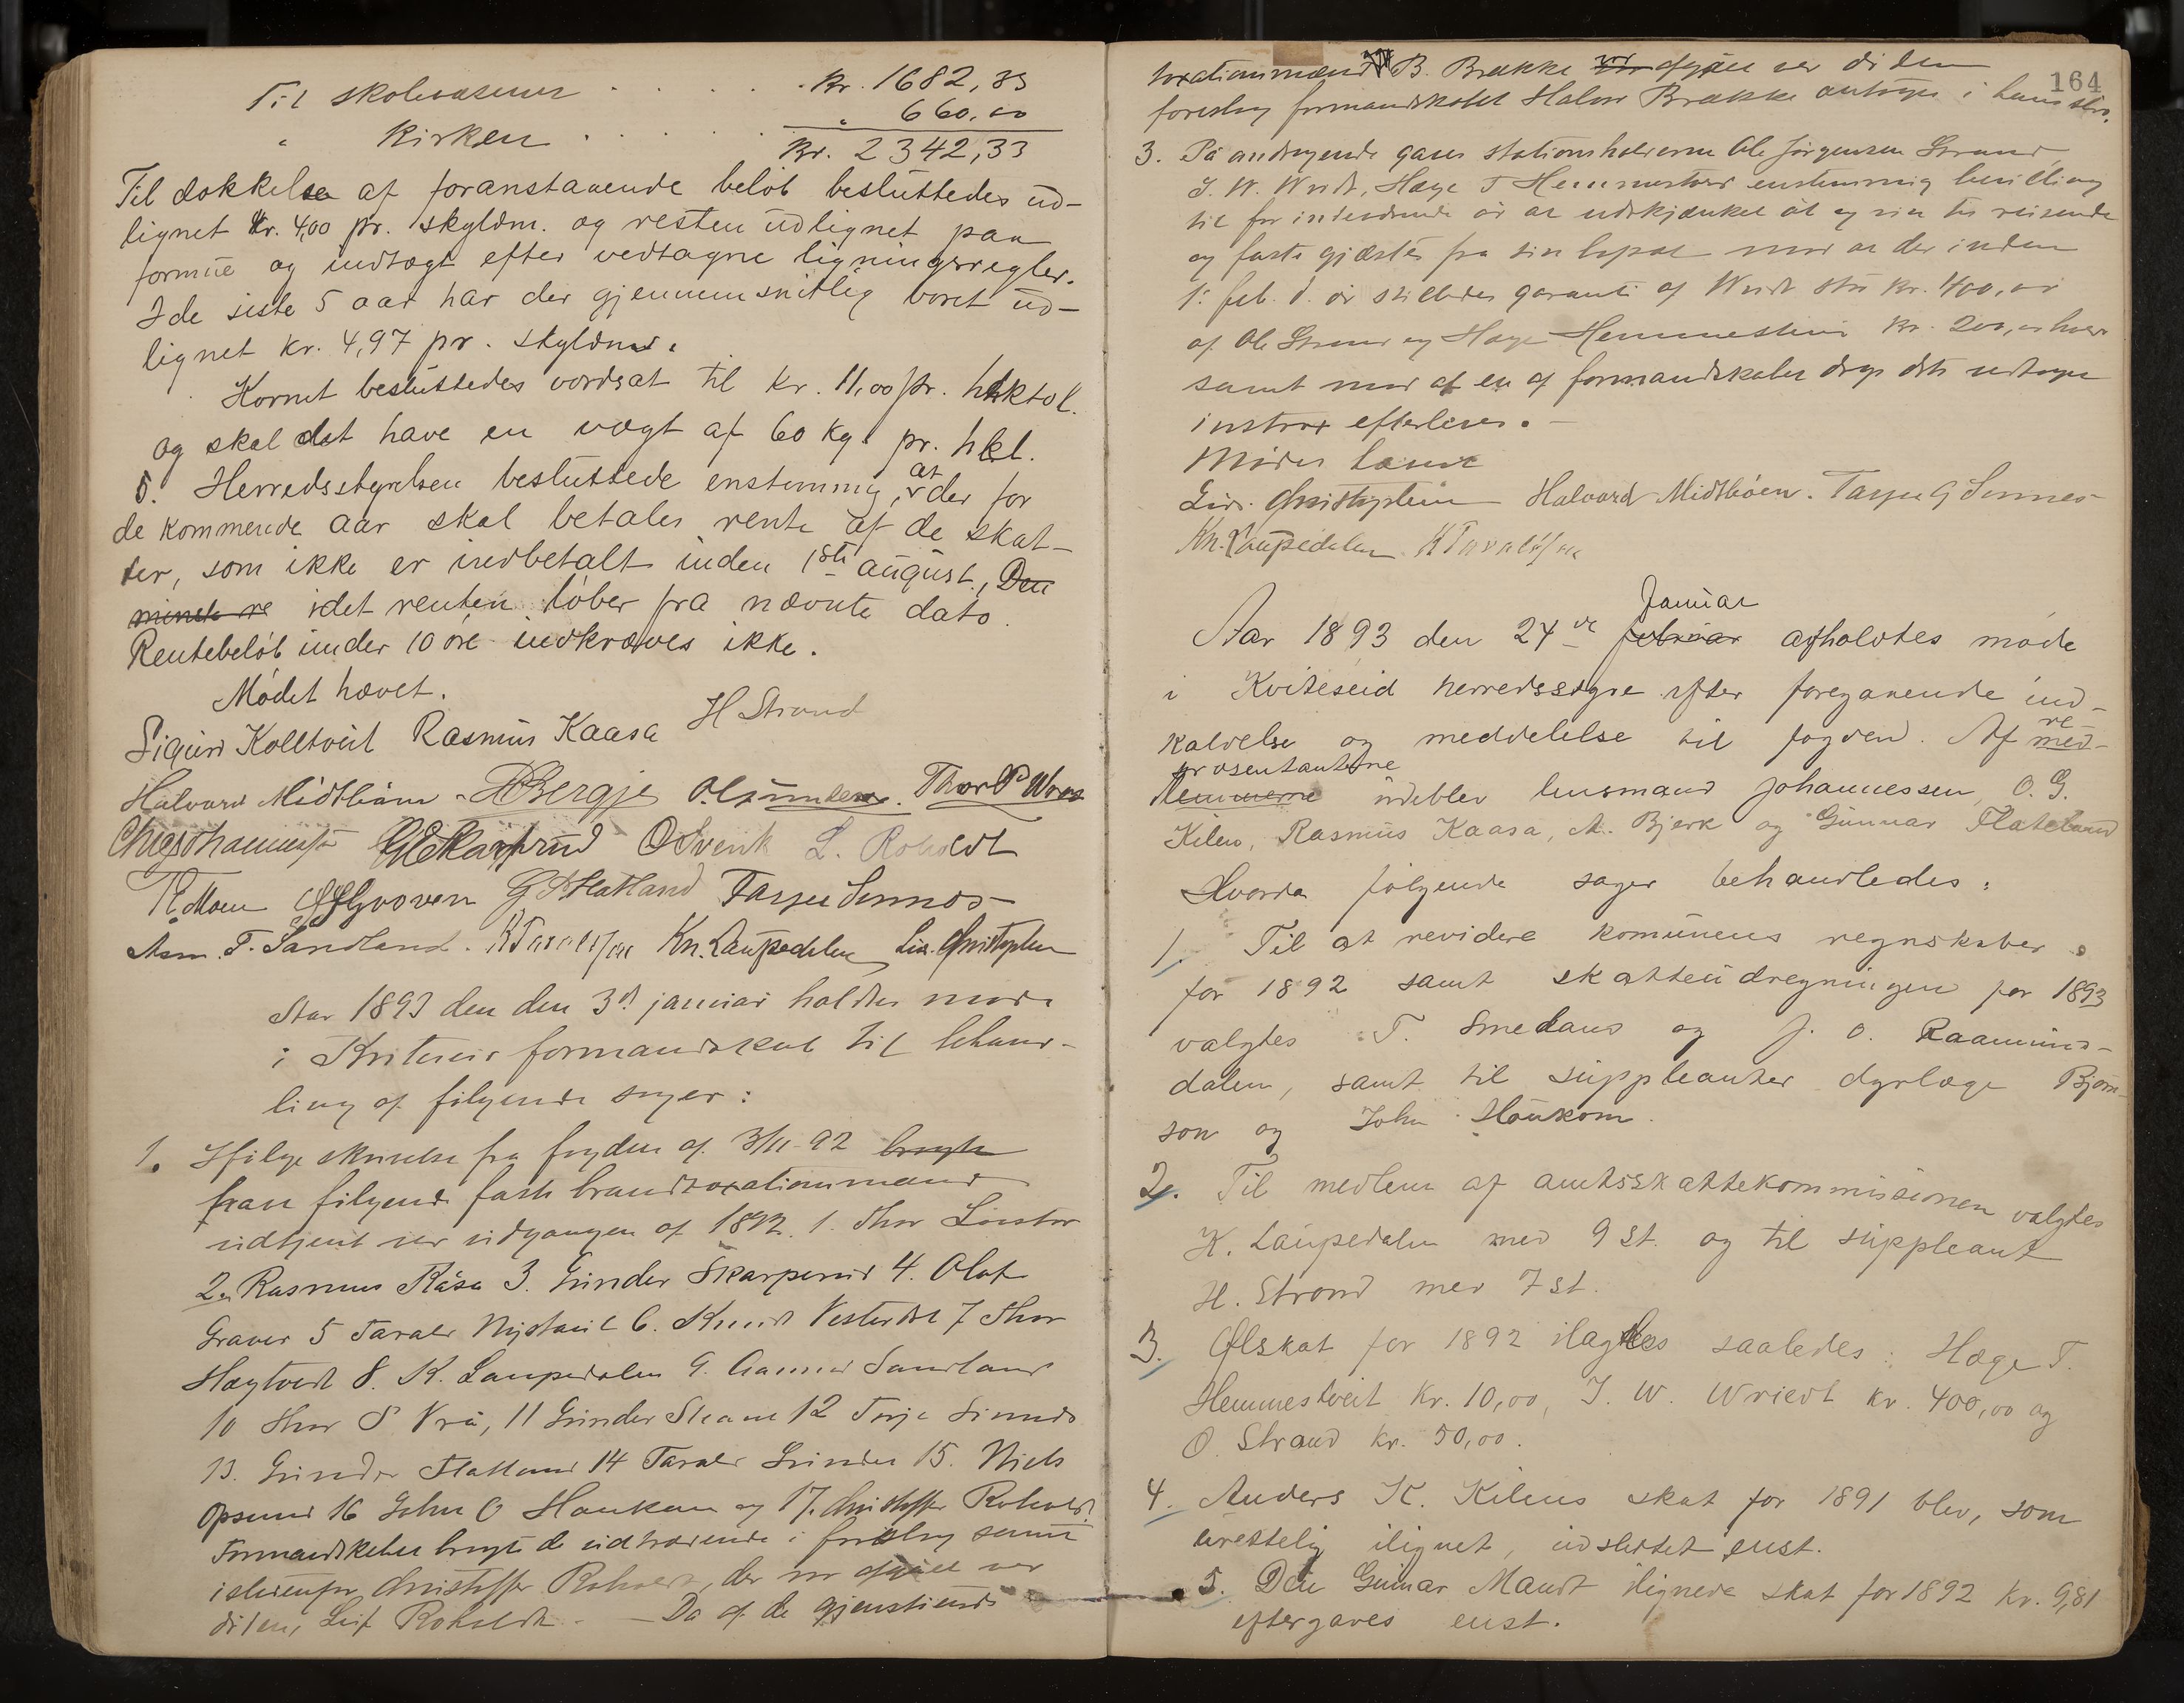 Til skolevæsenet . . . . . Kr. 1682,33
" Kirken . . . . . . " 660,00
Kr. 2342,33
Til dækkelse af foranstaaende beløb besluttedes ud-
lignet kr. 4,00 pr. skyldm. og resten udlignet paa
formue og indtægt efter vedtagne ligningsregler.
I de siste 5 aar har der gjennemsnitlig været ud-
lignet kr. 4,97 pr. skyldmr.
Kornet besluttedes værdsat til kr. 11,00 pr. hektol.
og skal det have en vægt af 60 kg. pr. hkl.
5. Herredsstyrelsen besluttede enstemmig, at der for
de kommende aar skal betales rente af de skat-
ter, som ikke er indbetalt inden 1ste august, Den
idet renten løber fra nævnte dato.
Rentebeløb under 10 øre indkræves ikke.
Mødet hævet.
Sigurd Kolltveit Rasmus Kaasa H Strand
Halvord Midtbøen Bergje O. Thor P Wraa
G. Skarprud O Svenk L. Roholdt
G. Flatland Tarjei Simnes
Asm. T. Sandland. K Tarals Kn. Laupedalen Lir. Christophersen
Aar 1893 den den 3d januar holdtes møde
i Kviteseid formandskab til behand-
ling af følgende sager:
1. Ifølge skrivelse fra fogden af 3/11-92
have følgende faste brandtaxationsmænd
udtjent ved udgangen af 1892. 1. Thor
2. Rasmus Kåsa 3. Gunder Skarperud 4. Olaf
Graver 5 Tarald Nystaul 6. Knud Vesterdal 7 Thor
Haytvedt 8. K. Laupedalen 9. Sandland
10 Thor S Vrå, 11 Gunder 12 Tarje Simnes
13. Gunder Flatland 14 Tarald 15. Niels
Opsund 16 John O Haukom og 17. Christoffer Roholdt.
Formandskabet bragte de udtrædende i forslag samt
istedenfor Christoffer Roholdt, der er afgået ved
døden, Leif Roholdt. — Da af de gjenstående
164
taxationsmænd B. Brække er afgået ved døden
foreslog formandskabet Halvor Brække antages i hans sted.
3. På andragende gaves stationsholderne Ole Jørgensen Strand,
J. W. Wriedt, Hæge T Hemmestveit enstemmig bevilling
til for indeværende år at udskjænke øl og vin til reisende
og faste gjæster fra sin bopæl mod at der inden
1. feb. d. år stilledes garanti af Wriedt stor kr. 400,00
af Ole Strand og Hæge Hemmestveit kr. 200,00 hver
samt mod at en af formandskabet vedtagen
instrux efterleves. —
Mødet hævet
Lir. Christophersen Halvord Midtbøen. Tarjei G Simnes
Kn. Laupedalen K Tarals
Januar
Aar 1893 den 24de februar afholdtes møde
i Kviteseid herredsstyre efter foregaaende ind-
kaldelse og meddelelse til fogden. Af med- re-
præsentanterne
lemmerne udeblev lensmand Johannessen, O. G.
Kilen, Rasmus Kaasa, A. Bjerk og Gunnar Flateland
Hvorda følgende sager behandledes:
1. Til at revidere komunens regnskaber
for 1892 samt skatteudregningen for 1893
valgtes T. Smedaus og J. O. Raamunds-
dalen, samt til suppleanter dyrlæge Bjørn-
son og John Haukom.
2. Til medlem af amtsskattekommissionen valgtes
K. Laupedalen med 9 st. og til suppleant
H. Strand med 7 st.
3. Ølskat for 1892 ilagdes saaledes: Hæge T.
Hemmestveit kr. 10,00, J. W. Wriedt kr. 400,00 og
O. Strand kr. 50,00.
4. Anders K. Kilens skat for 1891 blev, som
urettelig ilignet, udslettet enst.
5. Den Gunar Mandt ilignede skat for 1892 kr. 9,81
eftergaves enst.